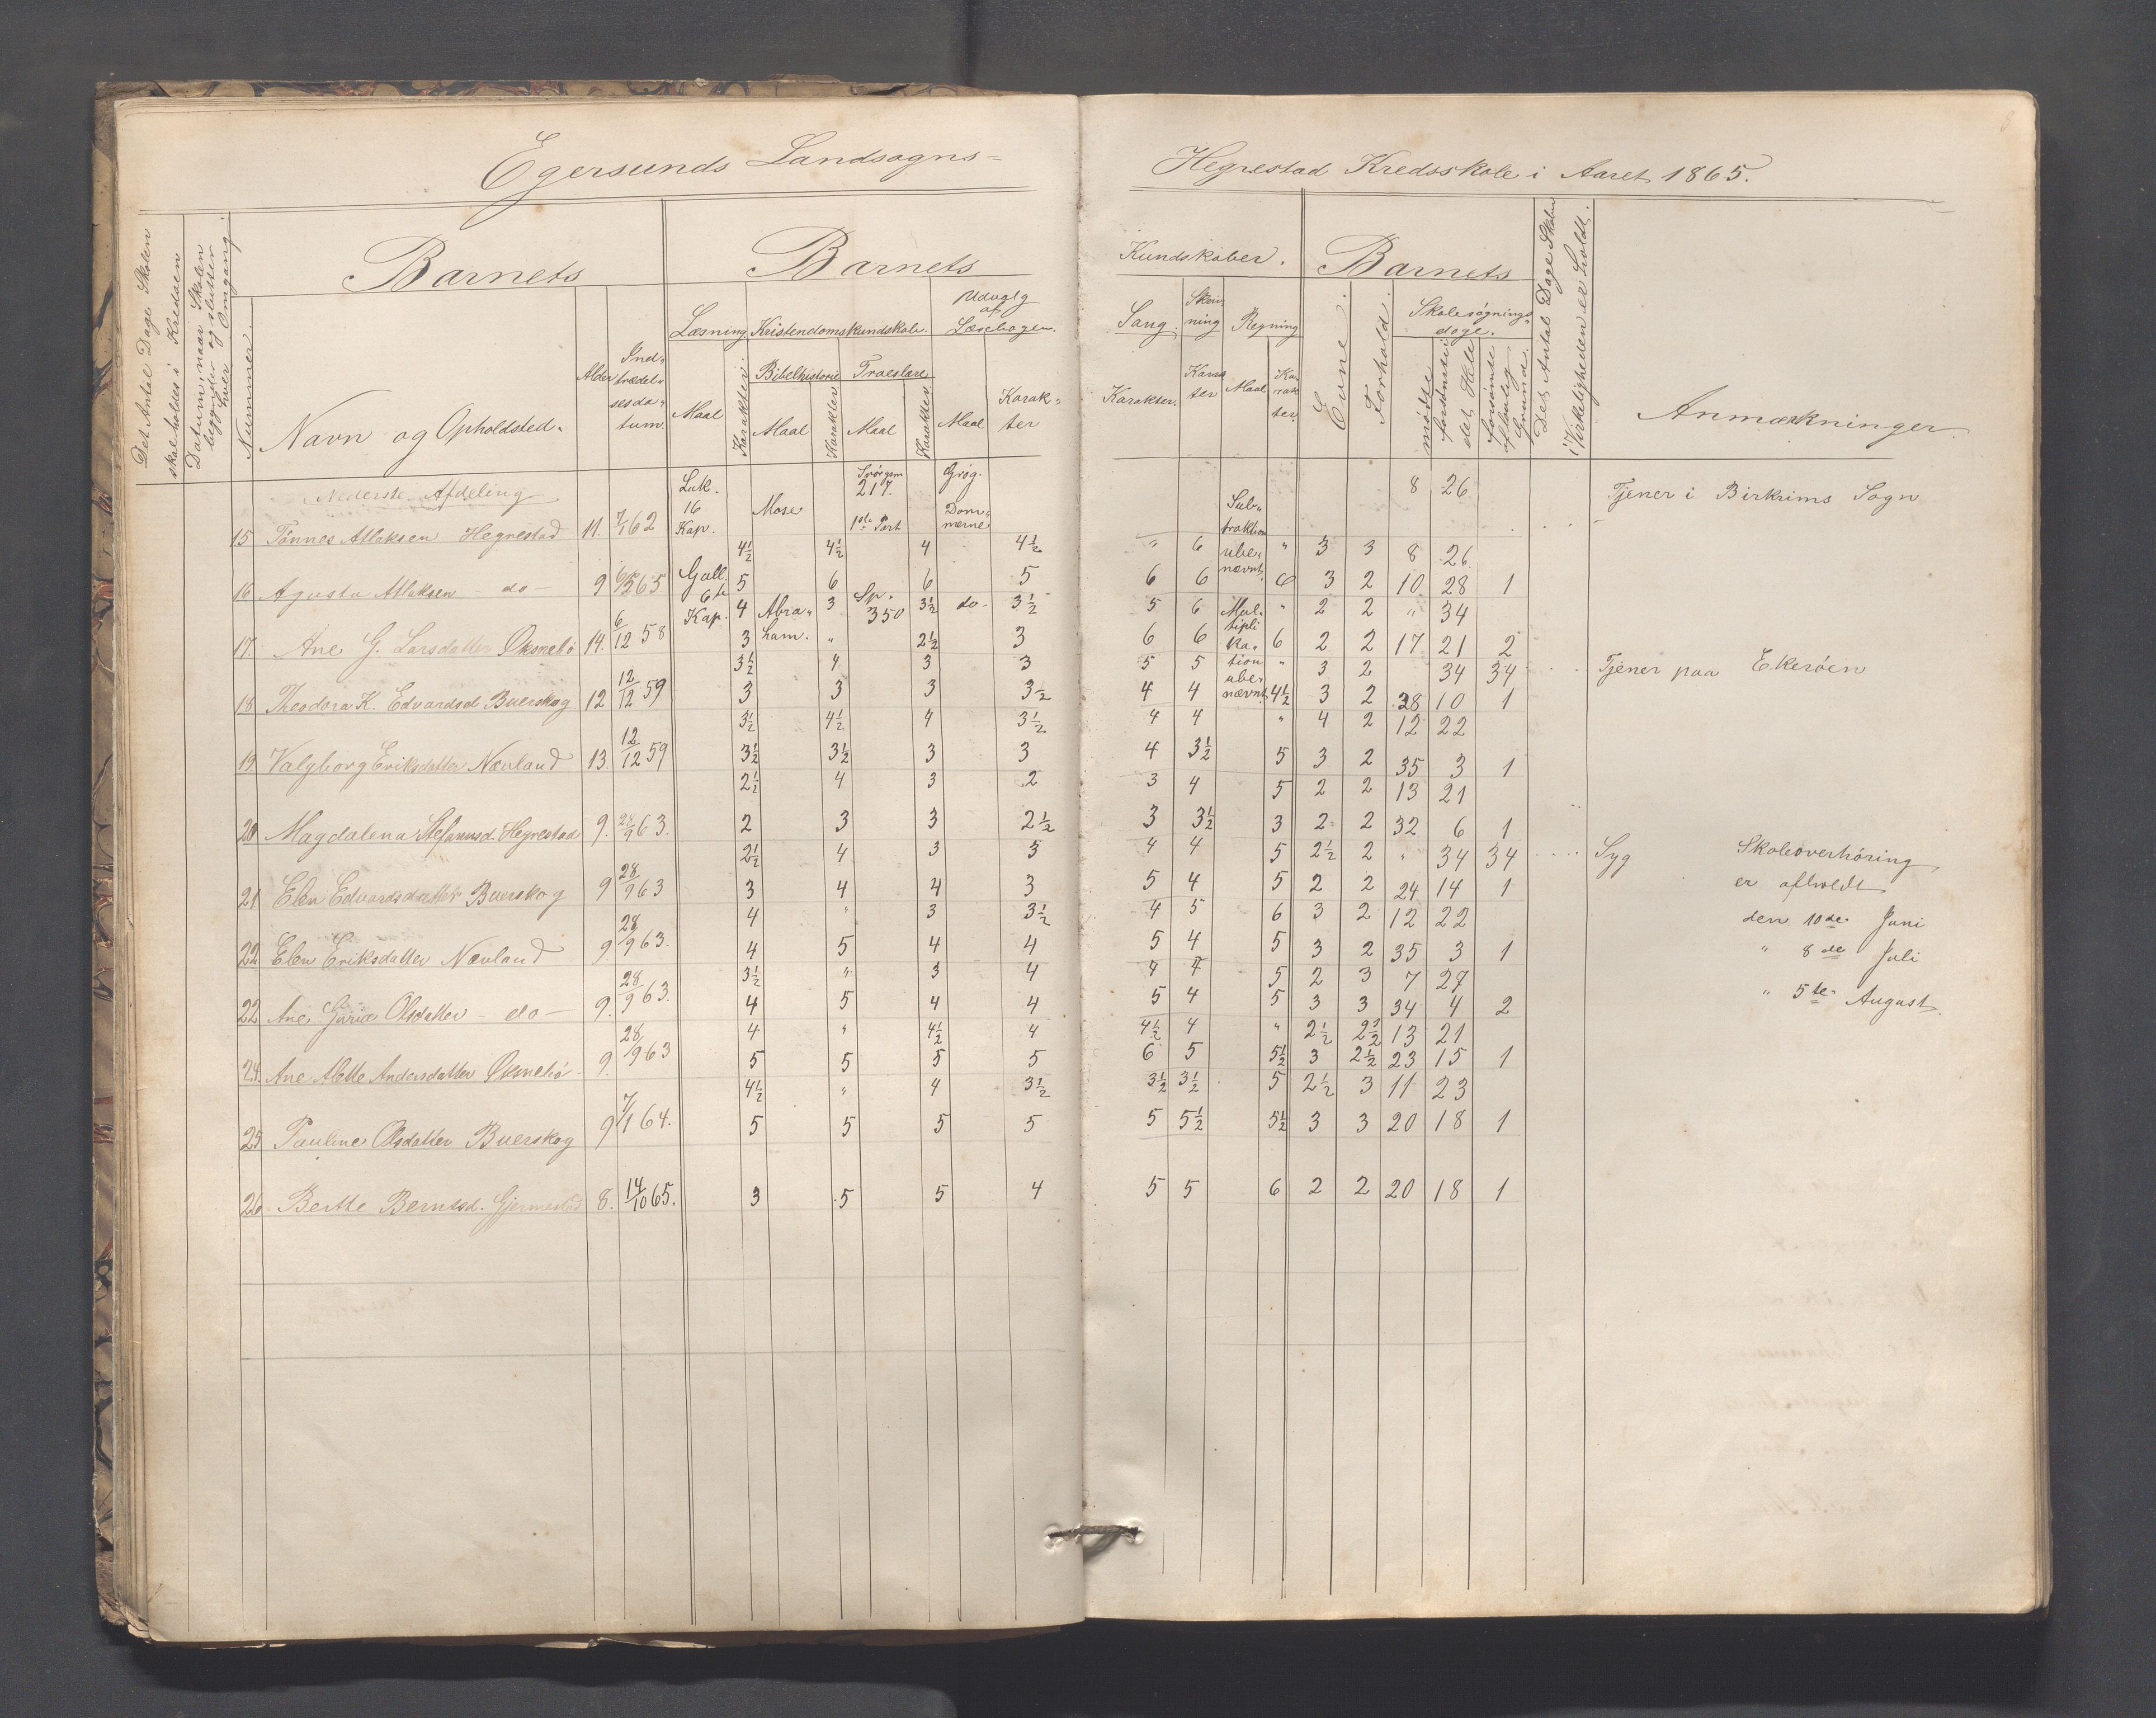 Egersunds Landsogns-
Hegrestad Kredsskole i Aaret 1865.
Det Antal Dage Skolen
skal holdes i Kredsen
Datum, naar Skolen
begynder og slutter
hver Omgang.
Nummer.
Barnets
Navn og Opholdsted.
Alder
Ind-
trædel-
sesda-
tum.
Barnets
Læsning.
Maal
Karakter
Kristendomskundskab.
Bibelhistorie
Maal
Karakter
Troeslære
Maal
Karakter
Udvalg
af
Læsebogen.
Maal
Karak-
ter
Kundskaber.
Sang.
Karakter.
Skriv-
ning
Karak
ter
Regning
Maal
Ka-
rak
ter.
Barnets
Evne.
Forhold.
Skolesøgnings-
dage.
mødte
forsømte i
det Hele
forsømte
af lovlig
Grund.
Det Antal Dage Skolen
i Virkeligheden er holdt.
Anmærkninger.
Nederste Afdeling
Luk.
16
Kap.
Mose
217.
1ste Part
Dom-
merne
Sub-
traktion
ube-
nævnt.
8 26
Tjener i Birkrims Sogn
15 Tønnes Atlaksen Hegrestad 11. 7/1 62
4½ 4½ 4 4½ " 6 " 3 3 8 26
16 Agusta Atlaksen - do - 9 65
5 6 6 5 6 6 6 3 2 10 28 1
Gall.
6te
Kap.
Abra-
ham.
Sp.
350
do-
Mul-
tipli
ka-
tion
ube
nævnt
4 3 3½ 3½ 5 6 " 2 2 " 34
17. Ane G. Larsdatter Øksnebø 14. 6/12 58
3 " 2½ 3 6 6 6 2 2 17 21 2
3½ 4 3 3 5 5 " 3 2 34 34 Tjener paa Ekerøen
18 Theodora K. Edvardsd Buerskog 12 12/12 59
3 3 3 3½ 4 4 4½ 3 2 28 10 1
3½ 4½ 4 3½ 4 4 " 4 2 12 22
19 Valgborg Eriksdatter Nævland 13. 12/12 59
3½ 3½ 3 3 4 3½ 5 3 2 35 3 1
2½ 4 3 2 3 4 5 2 2 13 21
20 Magdalena Stefanusd. Hegrestad 9. 28/9 63.
2 3 3 2½ 3 3½ 3 2 2 32 6 1
2½ 4 3 3 4 4 5 2½ 2 " 34 34 Syg
21 Elen Edvardsdatter Buerskog 9 28/9 63
3 4 4 3 5 4 5 2 2 24 14 1
4 " 3 3½ 4 5 6 3 2 12 22
22 Elen Eriksdatter Nævland 9. 28/9 63.
4 5 4 4 5 4 5 3 2 35 3 1
3½ " 3 4 4 4 5 2 3 7 27
22 Ane Gurie Olsdatter - do - 9. 28/9 63.
4 5 4 4 5 4 5 3 3 34 4 2
4 " 4½ 4 4½ 4 " 2½ 2½ 13 21
24. Ane Alette Andersdatter Øksnebø 9. 28/9 63
5 5 5 5 6 5 5½ 3 2½ 23 15 1
4½ " 4 3½ 3½ 3½ 5 2½ 3 11 23
25 Pauline Olsdatter Buerskog 9 7/1 64.
5 5 5 5 5 5½ 5½ 3 3 20 18 1
26 Berthe Berntsd. Gjermestad 8. 14/10 65.
3 5 5 4 5 5 6 2 2 20 18 1
Skoleoverhøring
er afholdt
den 10de Juni
" 8de Juli
" 5te August.